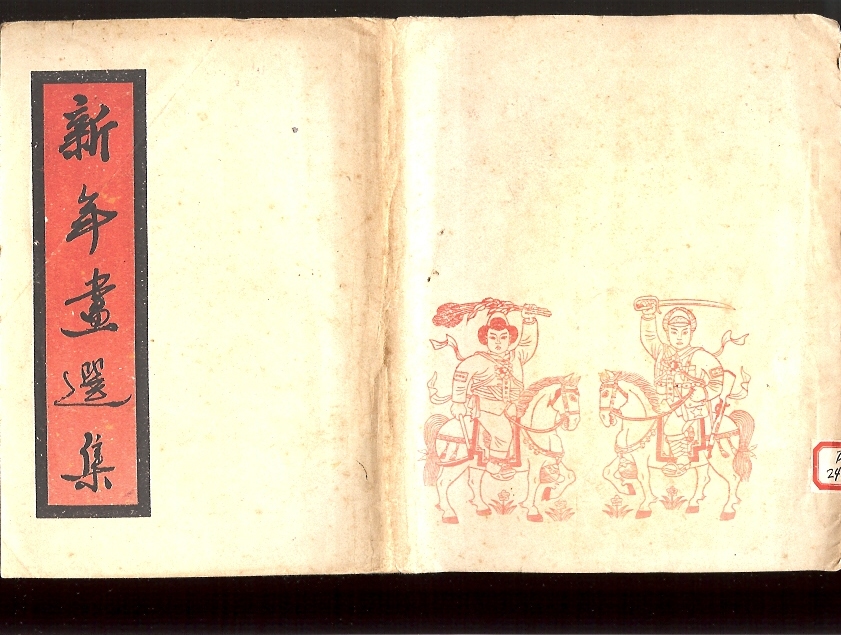 新年畫選集
24